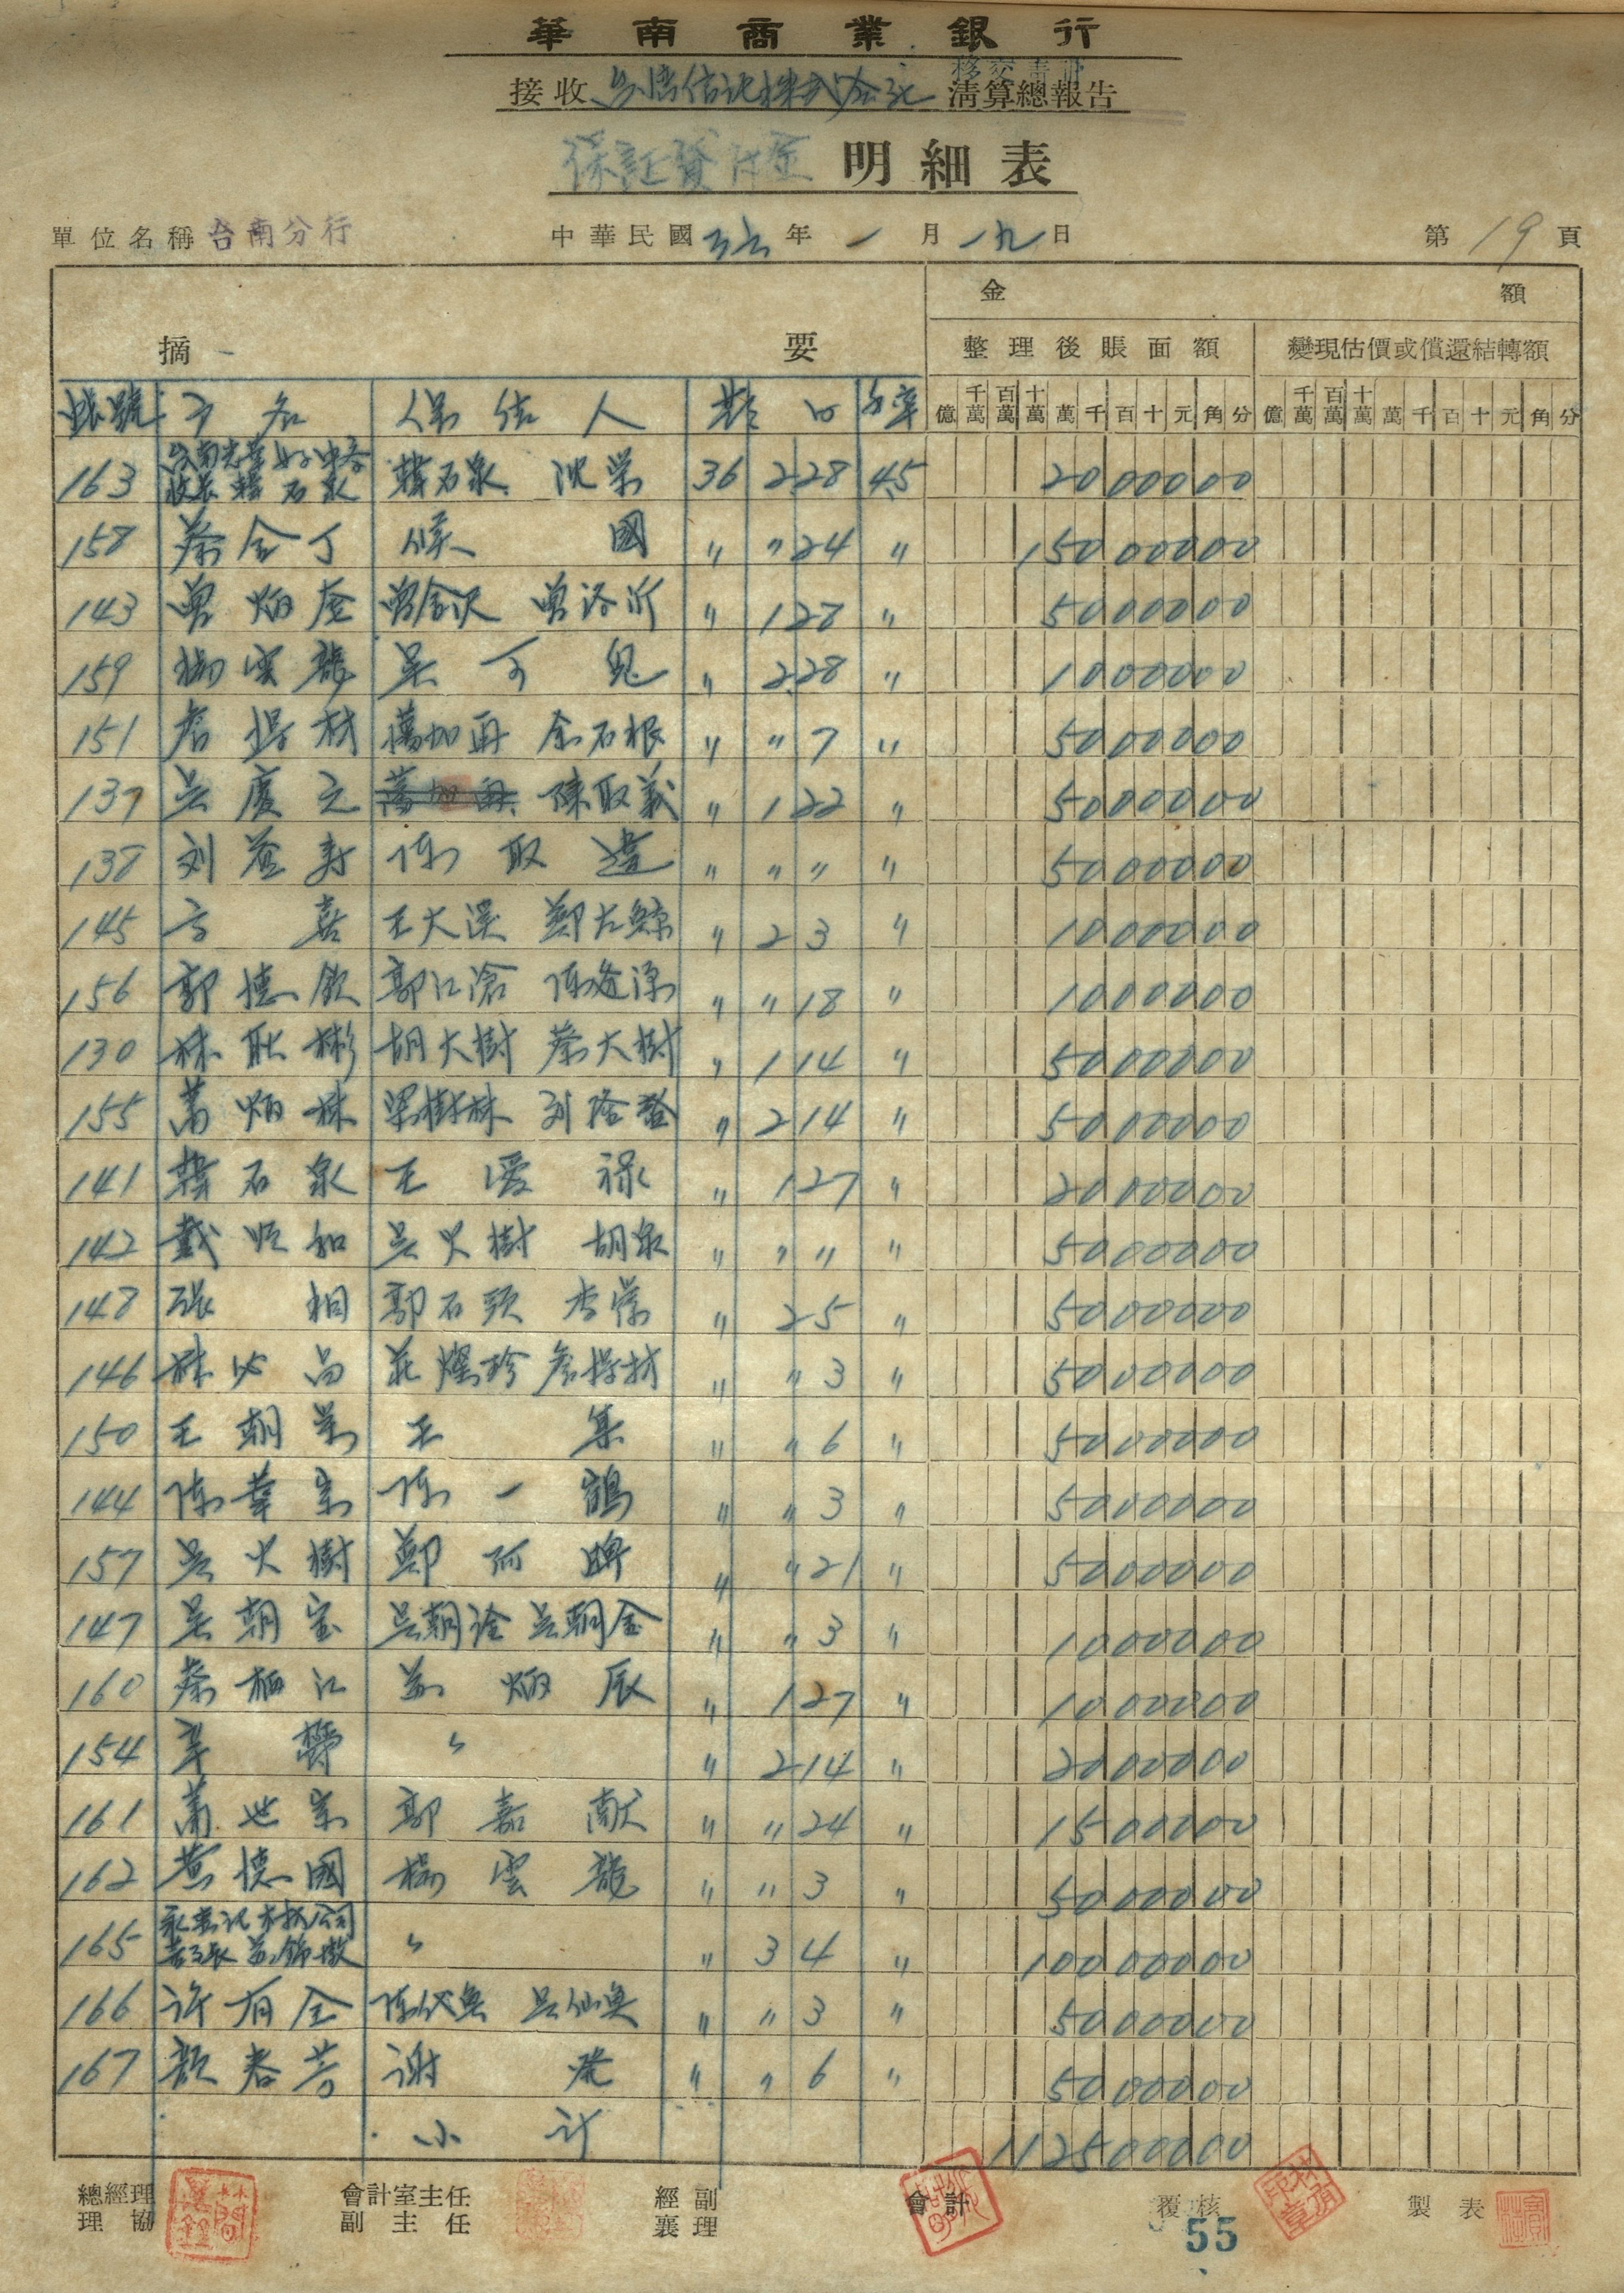 華南商業銀行
接收 台湾信託株式会社 清算總報告
移交清冊
保証貸付金 明細表
單位名稱 台南分行 中華民國 三六 年 一 月 一九 日 第 19 頁
金 額
摘 要 整理後賬面額 變現估價或償還結轉額
帳號 戶名 保信人 期日 利率 億 千萬 百萬 十萬 萬 千 百 十 元 角 分 億 千萬 百萬 十萬 萬 千 百 十 元 角 分
163 台南光華女子中学 校長 韓石泉 韓石泉 沈榮 36 2 28 4.5 2000000
158 蔡金丁 侯 國 〃 〃 24 〃 15000000
143 曾炳 曾 曾 〃 1 27 〃 5000000
159 楊雲龍 吳可鬼 〃 2 28 〃 1000000
151 詹得材 萬加再 余石根 〃 〃 7 〃 5000000
137 吳慶元 陳取義 〃 1 22 〃 5000000
138 刘益寿 陈取 〃 〃 〃 〃 5000000
145 方喜 王大漢 鄭大鯨 〃 2 3 〃 1000000
156 郭德欽 郭江滄 陈逢源 〃 〃 18 〃 1000000
130 林耿彬 胡大樹 蔡大樹 〃 1 14 〃 5000000
155 萬炳林 梁樹林 刘啓登 〃 2 14 〃 5000000
141 韓石泉 王受祿 〃 1 27 〃 2000000
142 戴順和 吳火樹 胡泉 〃 〃 〃 〃 5000000
148 張相 郭石頭 李榮 〃 2 5 〃 5000000
146 林火 花燦珍 詹得材 〃 〃 3 〃 5000000
150 王朝榮 王集 〃 〃 6 〃 5000000
144 陈華宗 陈一鶴 〃 〃 3 〃 5000000
157 吳火樹 鄭阿牌 〃 〃 21 〃 5000000
147 吳朝宝 吳朝詮 吳朝金 〃 〃 3 〃 1000000
160 蔡栖江 蘇炳辰 〃 1 27 〃 1000000
154 辛 〃 〃 2 14 〃 2000000
161 蕭世宗 郭嘉献 〃 〃 24 〃 1500000
162 黄德國 楊雲龍 〃 〃 3 〃 5000000
165 木材公司 董事長 蘇錦墩 〃 〃 3 4 〃 10000000
166 許有全 陈 吳仙 〃 〃 3 〃 5000000
167 顏春芳 謝 〃 〃 6 〃 5000000
小計 112500000
總經理 協理 會計室主任 副主任 經副襄理 會計 覆核 製表
55